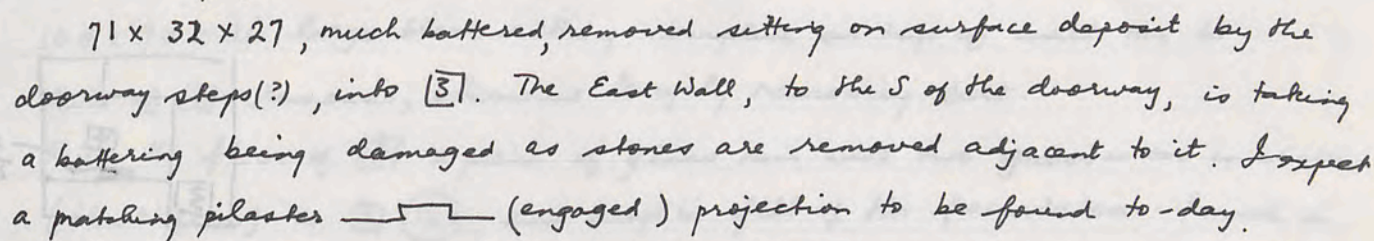 71 x 32 x 27, much battered, removed sitting on surface deposit by the
doorway steps(?), into [3]. The East Wall, to the S of the doorway, is taking
a battering being damaged as stones are removed adjacent to it. I expect
a matching pilaster (engaged) projection to be found to-day.